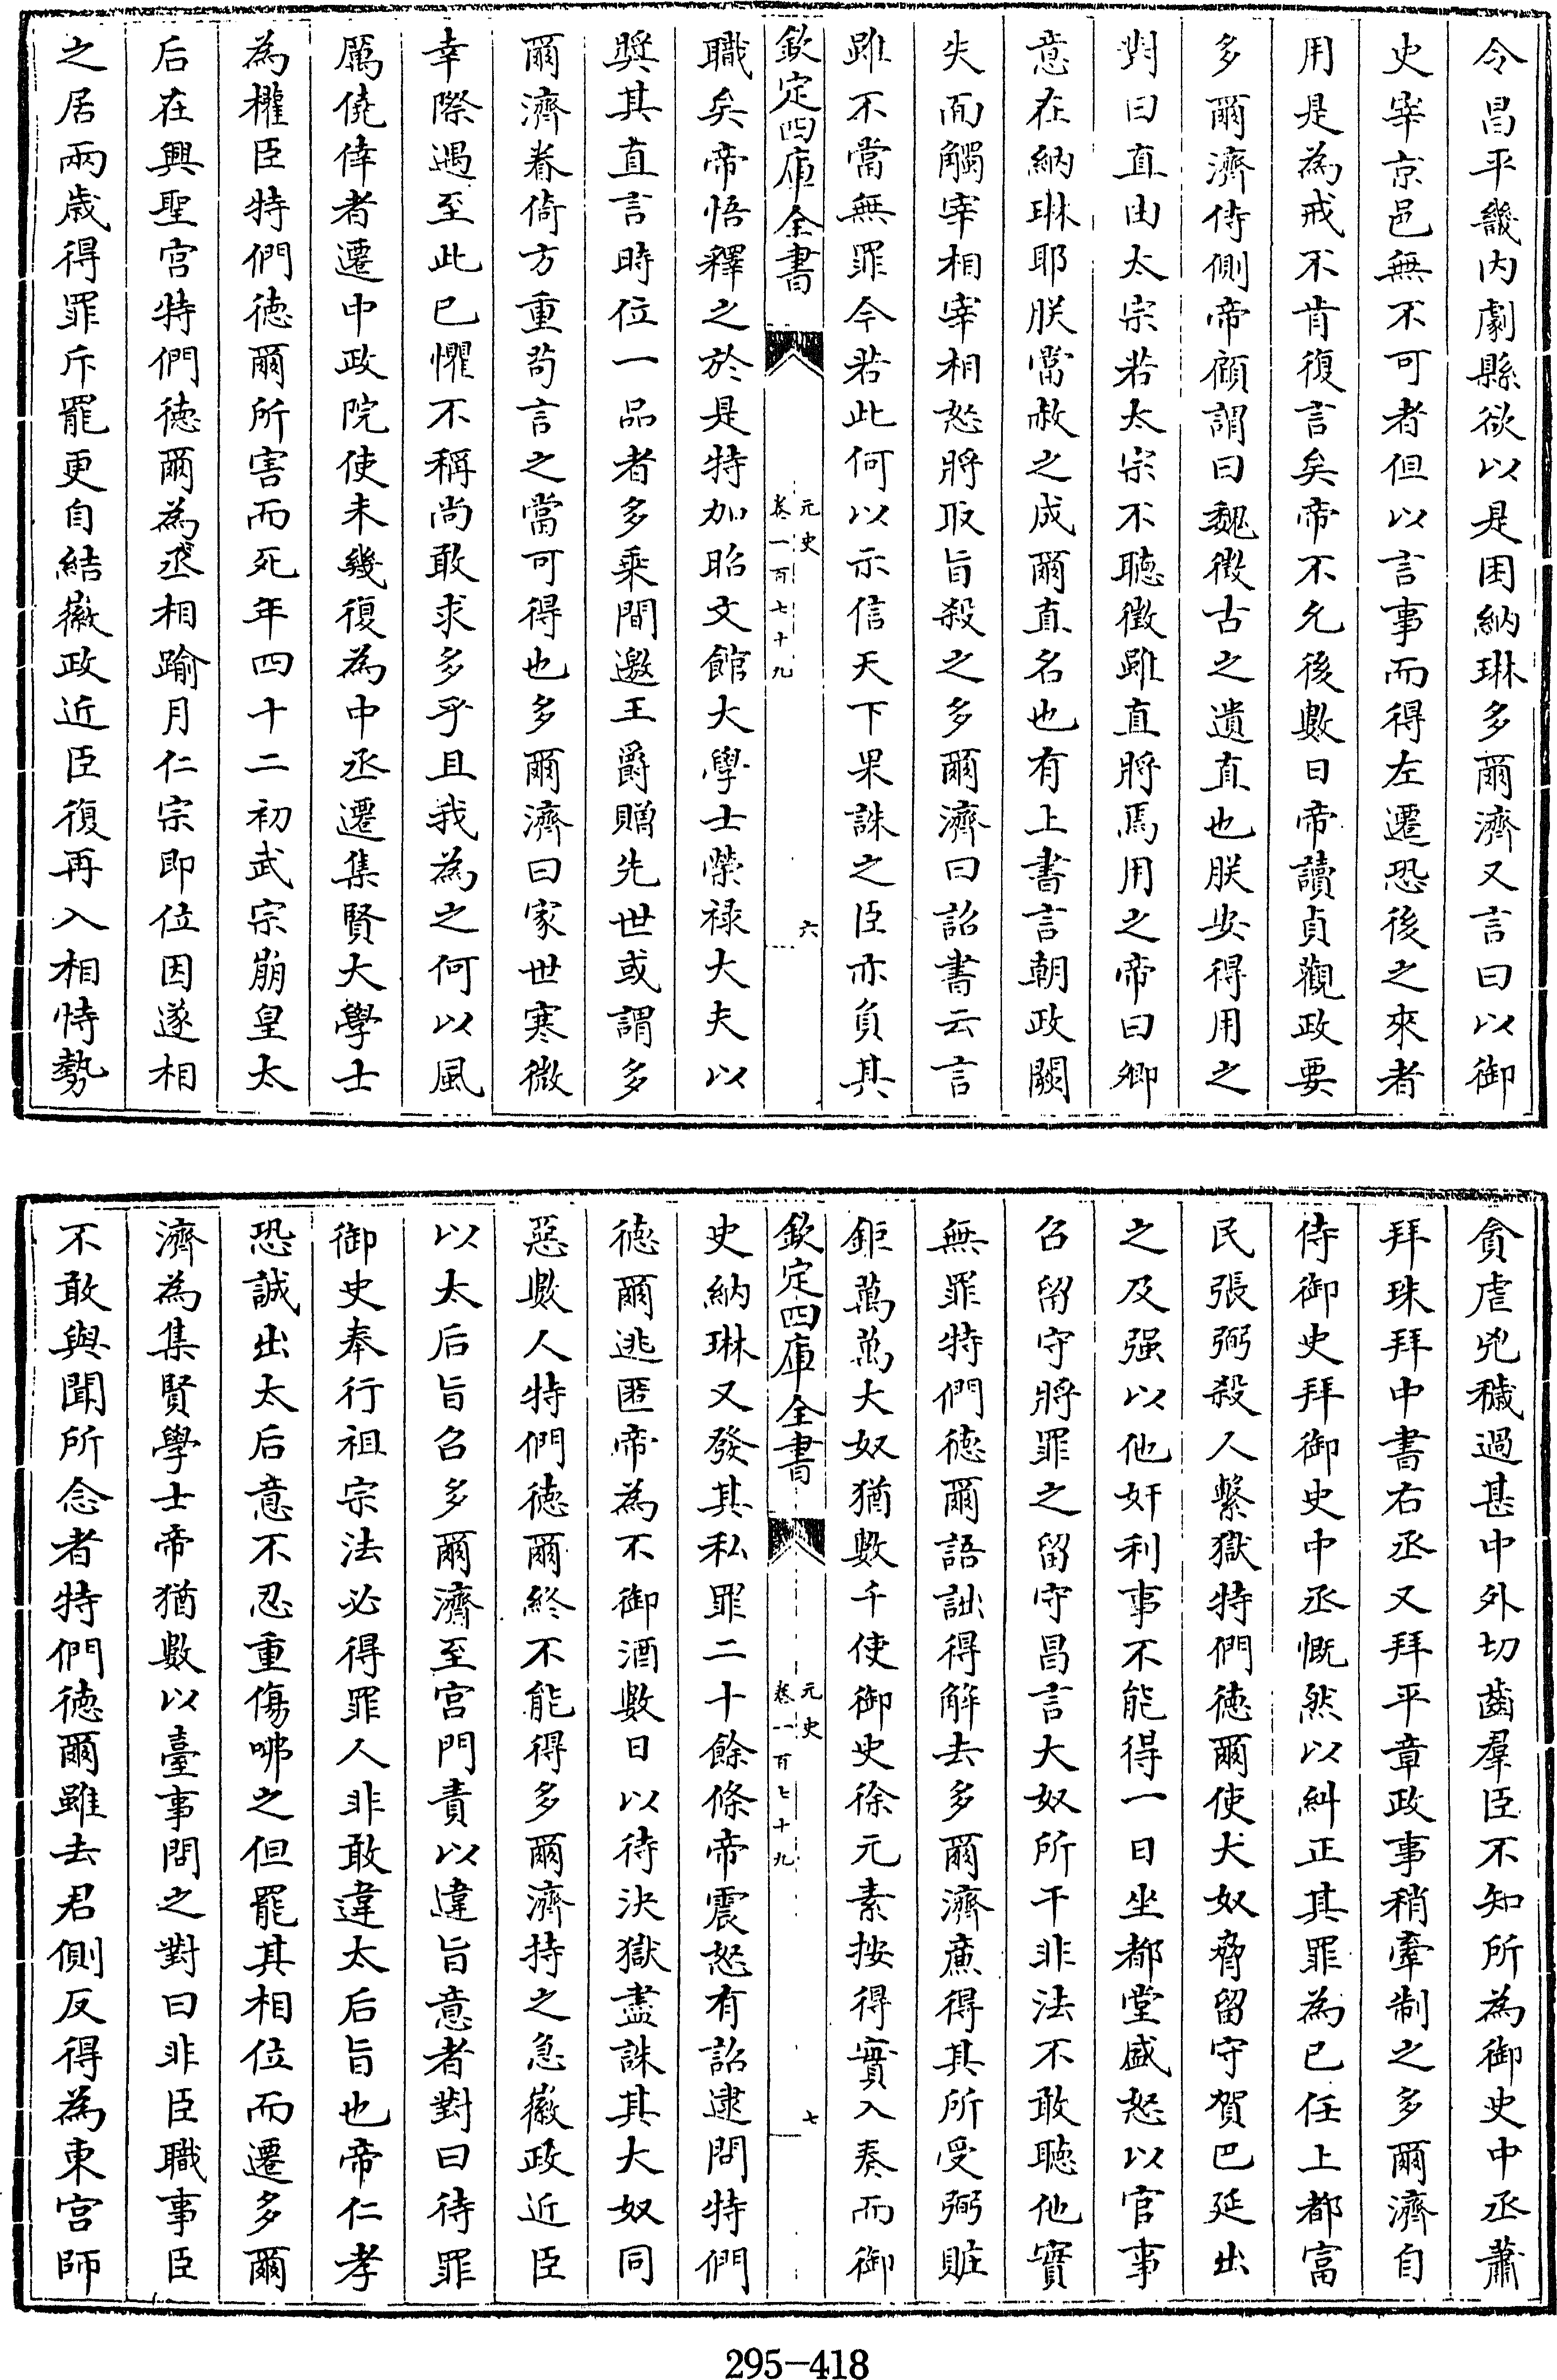 令昌平畿内劇縣欲以是困納琳多爾濟又言曰以御
史宰京邑無不可者但以言事而得左遷恐後之來者
用是為戒不肯復言矣帝不允後數日帝讀貞觀政要
多爾濟侍側帝顧謂曰魏徵古之遺直也朕安得用之
對曰直由太宗若太宗不聽徵雖直將焉用之帝曰卿
意在納琳耶朕當赦之成爾直名也有上書言朝政闕
失而觸宰相宰相怒將取旨殺之多爾濟曰詔書云言
雖不當無罪今若此何以示信天下果誅之臣亦負其
欽定四庫全書
元史
卷一百七十九
六
職矣帝悟釋之於是特加昭文館大學士榮禄大夫以
奬其直言時位一品者多乘間邀王爵贈先世或謂多
爾濟眷倚方重茍言之當可得也多爾濟曰家世寒微
幸際遇至此已懼不稱尚敢求多乎且我為之何以風
厲僥倖者遷中政院使未幾復為中丞遷集賢大學士
為權臣特們徳爾所害而死年四十二初武宗崩皇太
后在興聖宫特們徳爾為丞相踰月仁宗即位因遂相
之居兩歲得罪斥罷更自結徽政近臣復再入相恃勢
貪虐兇穢過甚中外切齒羣臣不知所為御史中丞蕭
拜珠拜中書右丞又拜平章政事稍牽制之多爾濟自
侍御史拜御史中丞慨然以糾正其罪為已任上都富
民張弼殺人繫獄特們徳爾使大奴脅留守賀巴延出
之及强以他奸利事不能得一日坐都堂盛怒以官事
召留守將罪之留守昌言大奴所干非法不敢聽他實
無罪特們徳爾語詘得解去多爾濟亷得其所受弼贓
鉅萬萬大奴猶數千使御史徐元素按得實入奏而御
欽定四庫全書
元史
卷一百七十九
七
史納琳又發其私罪二十餘條帝震怒有詔逮問特們
徳爾逃匿帝為不御酒數日以待決獄盡誅其大奴同
惡數人特們徳爾終不能得多爾濟持之急徽政近臣
以太后旨召多爾濟至宫門責以違旨意者對曰待罪
御史奉行祖宗法必得罪人非敢違太后旨也帝仁孝
恐誠出太后意不忍重傷咈之但罷其相位而遷多爾
濟為集賢學士帝猶數以臺事問之對曰非臣職事臣
不敢與聞所念者特們徳爾雖去君側反得為東宫師
295-418